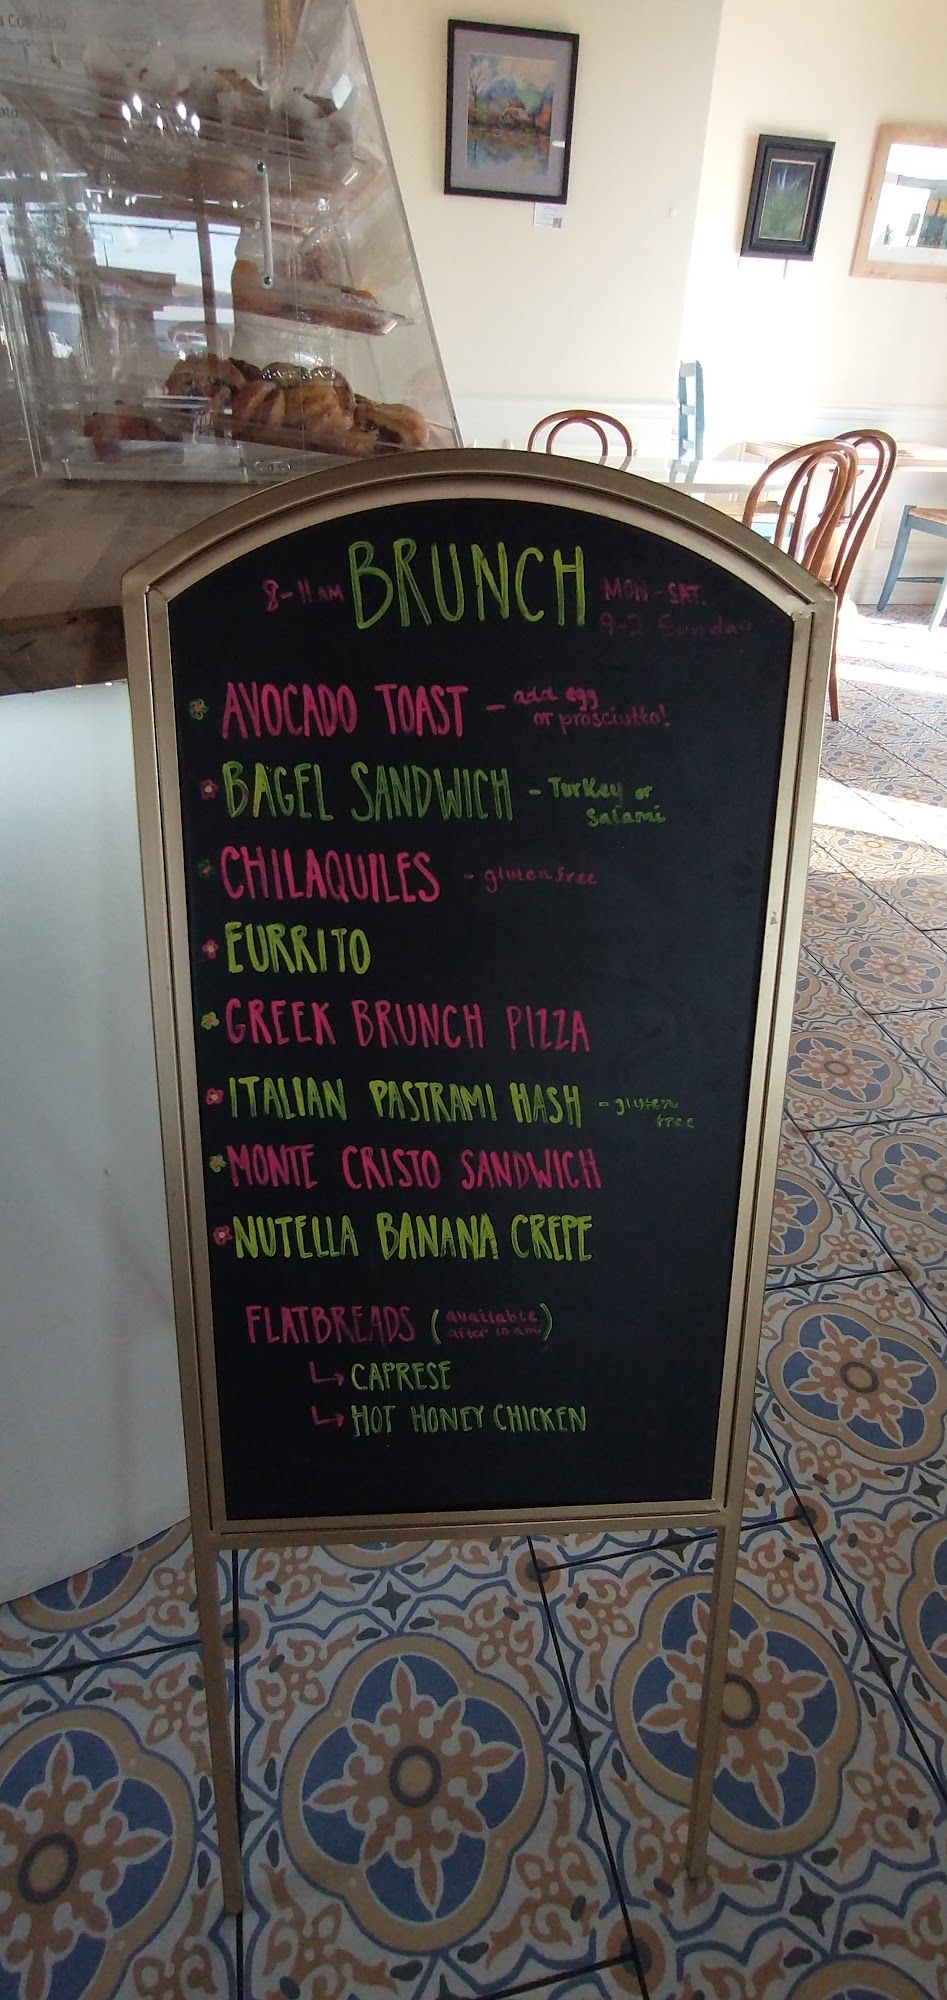 BRUNCH
8-11 AM
MON-SAT.
9-2 Sunday
AVOCADO TOAST - add egg
or prosciutto!
BAGEL SANDWICH - Turkey or
Salami
CHILAQUILES - gluten free
EURRITO
GREEK BRUNCH PIZZA
ITALIAN PASTRAMI HASH - gluten
free
MONTE CRISTO SANDWICH
NUTELLA BANANA CREPE
FLATBREADS (available
after 10 am)
CAPRESE
HOT HONEY CHICKEN